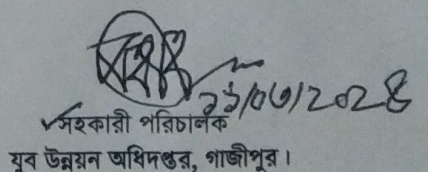 ২১/০৩/২০২৪
সহকারী পরিচালক
যুব উন্নয়ন অধিদপ্তর, গাজীপুর।